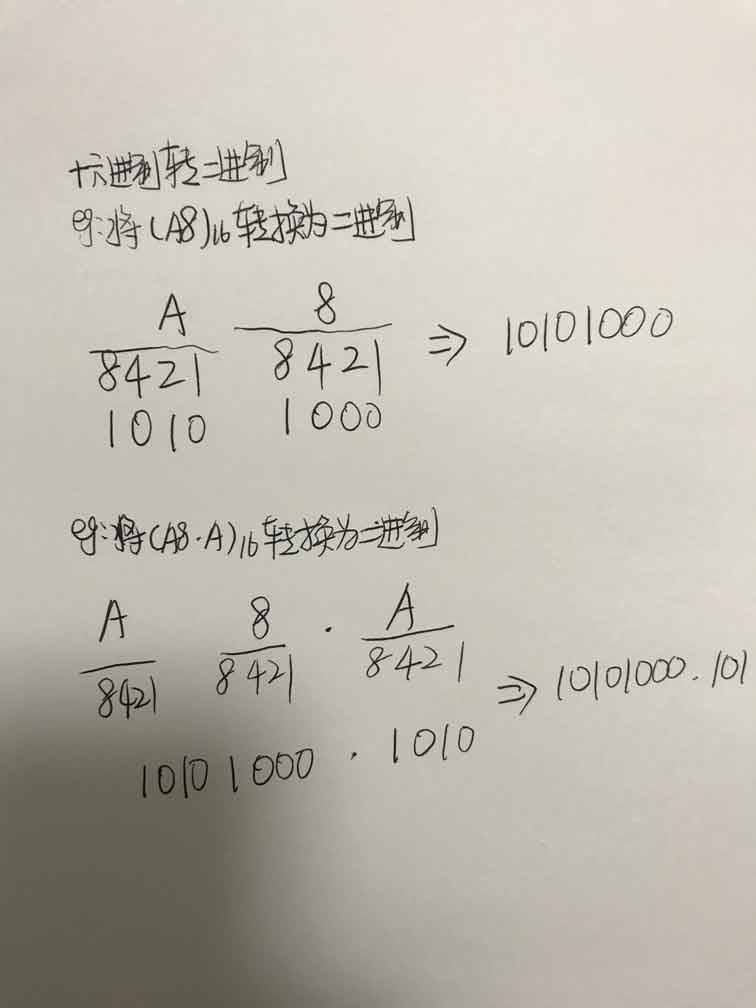 十六进制转二进制
eg:将(A8)16转换为二进制
A 8
8421 8421 ⇒ 10101000
1010 1000
eg:将(A8.A)16转换为二进制
A 8 . A
8421 8421 8421 ⇒ 10101000.101
1010 1000 . 1010